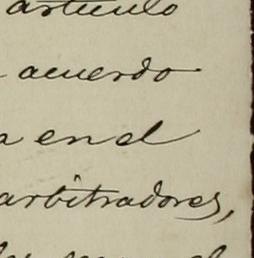 artículo
acuerdo
en el
arbitradores,